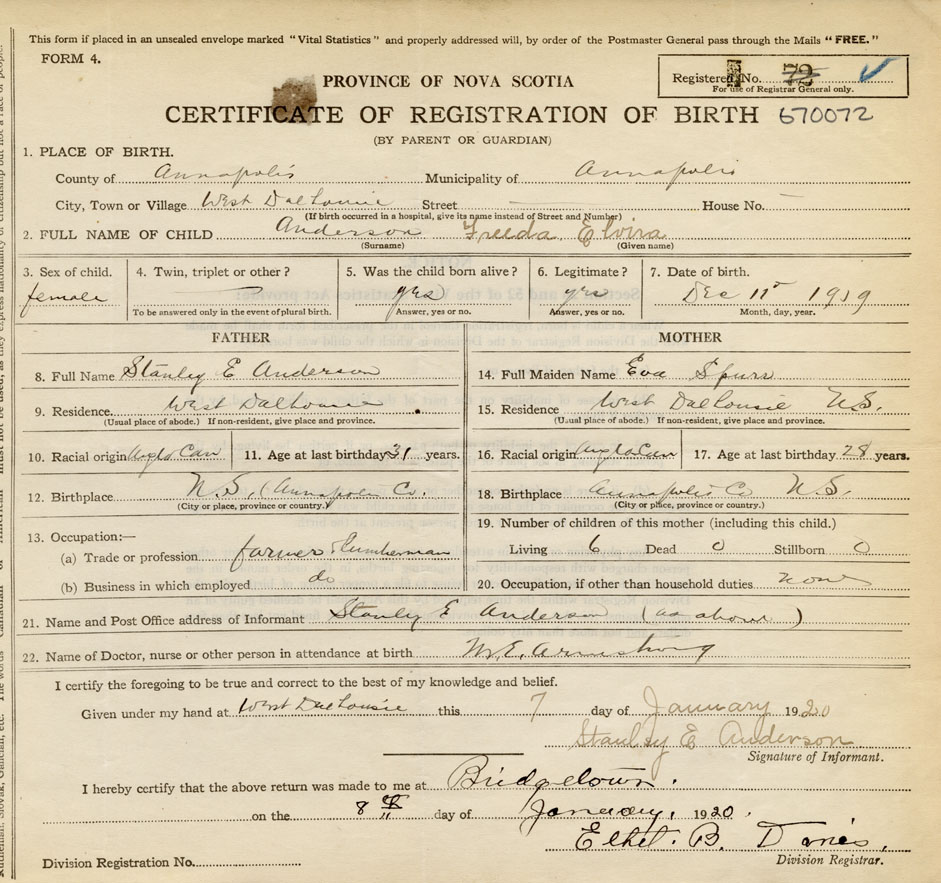 This form if placed in an unsealed envelope marked "Vital Statistics" and properly addressed will, by order of the Postmaster General pass through the Mails "FREE."
FORM 4.
Registered No. 72
For use of Registrar General only.
PROVINCE OF NOVA SCOTIA
CERTIFICATE OF REGISTRATION OF BIRTH 670072
(BY PARENT OR GUARDIAN)
1. PLACE OF BIRTH.
County of Annapolis Municipality of Annapolis
City, Town or Village West Dalhousie Street — House No. —
(If birth occurred in a hospital, give its name instead of Street and Number)
2. FULL NAME OF CHILD Anderson Freeda Elvira
(Surname) (Given name)
3. Sex of child. 4. Twin, triplet or other? 5. Was the child born alive? 6. Legitimate? 7. Date of birth.
female — yes yes Dec 11 1919
To be answered only in the event of plural birth. Answer, yes or no. Answer, yes or no. Month, day, year.
FATHER MOTHER
8. Full Name Stanley E Anderson 14. Full Maiden Name Eva Spurr
9. Residence. West Dalhousie 15. Residence West Dalhousie N.S.
(Usual place of abode.) If non-resident, give place and province. (Usual place of abode.) If non-resident, give place and province.
10. Racial origin Anglo Can 11. Age at last birthday 31 years. 16. Racial origin Anglo Can 17. Age at last birthday 28 years.
12. Birthplace N.S. (Annapolis Co. 18. Birthplace Annapolis Co N.S.
(City or place, province or country.) (City or place, province or country.)
13. Occupation:— 19. Number of children of this mother (including this child.)
(a) Trade or profession farmer & lumberman Living 6 Dead 0 Stillborn 0
(b) Business in which employed do 20. Occupation, if other than household duties. none
21. Name and Post Office address of Informant Stanley E Anderson (as above)
22. Name of Doctor, nurse or other person in attendance at birth M.E. Armstrong
I certify the foregoing to be true and correct to the best of my knowledge and belief.
Given under my hand at West Dalhousie this 7 day of January 1920
Stanley E Anderson
Signature of Informant.
I hereby certify that the above return was made to me at Bridgetown.
on the 8th day of January, 1920.
Ethel. B. Davies,
Division Registrar.
Division Registration No.